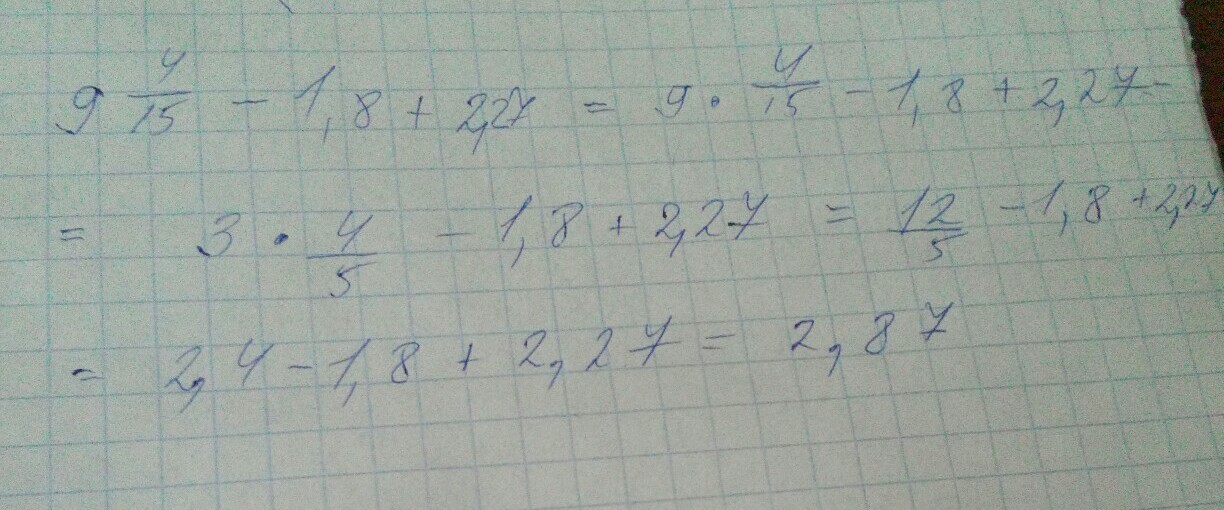 9 4/15 - 1,8 + 2,27 = 9 · 4/15 - 1,8 + 2,27 -
= 3 · 4/5 - 1,8 + 2,27 = 12/5 - 1,8 + 2,27
= 2,4 - 1,8 + 2,27 = 2,87